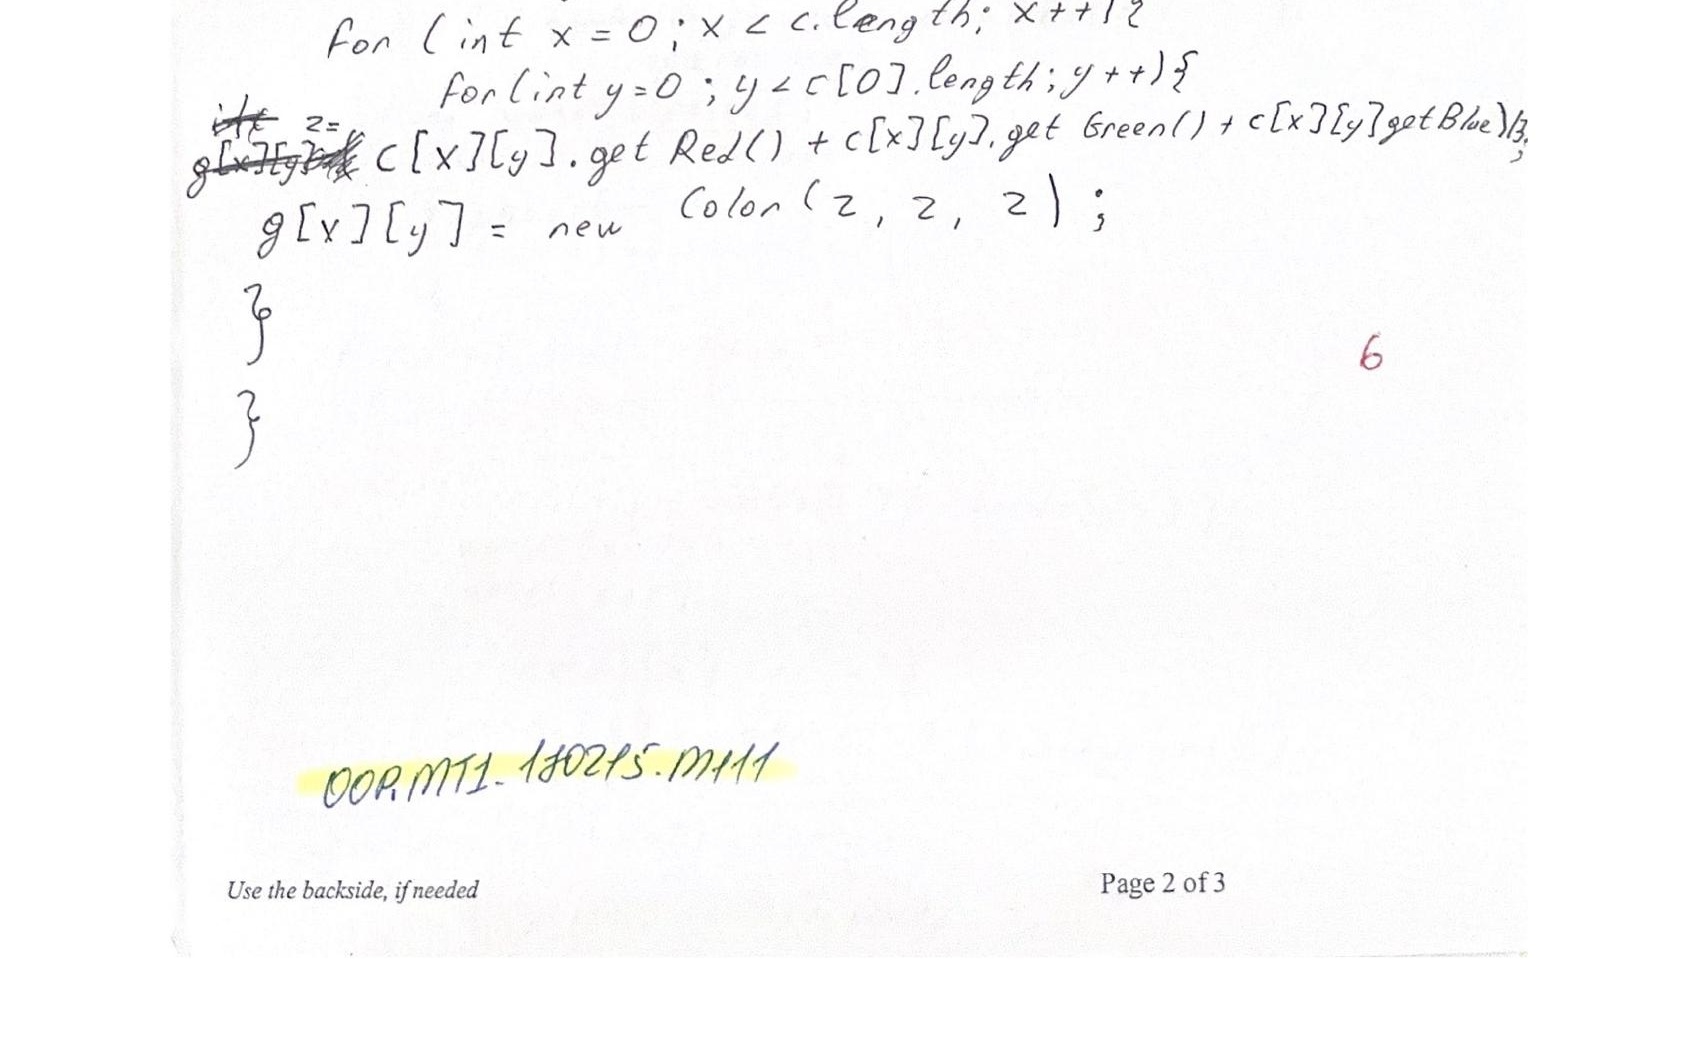 for (int x = 0; x < c.length; x++) {
for (int y=0; y<c[0].length; y++) {
z= c[x][y].getRed() + c[x][y].getGreen() + c[x][y]getBlue)/3;
g[x][y] = new Color(z, z, z);
}
}
6
OOP.MT1.170215.M111
Use the backside, if needed
Page 2 of 3